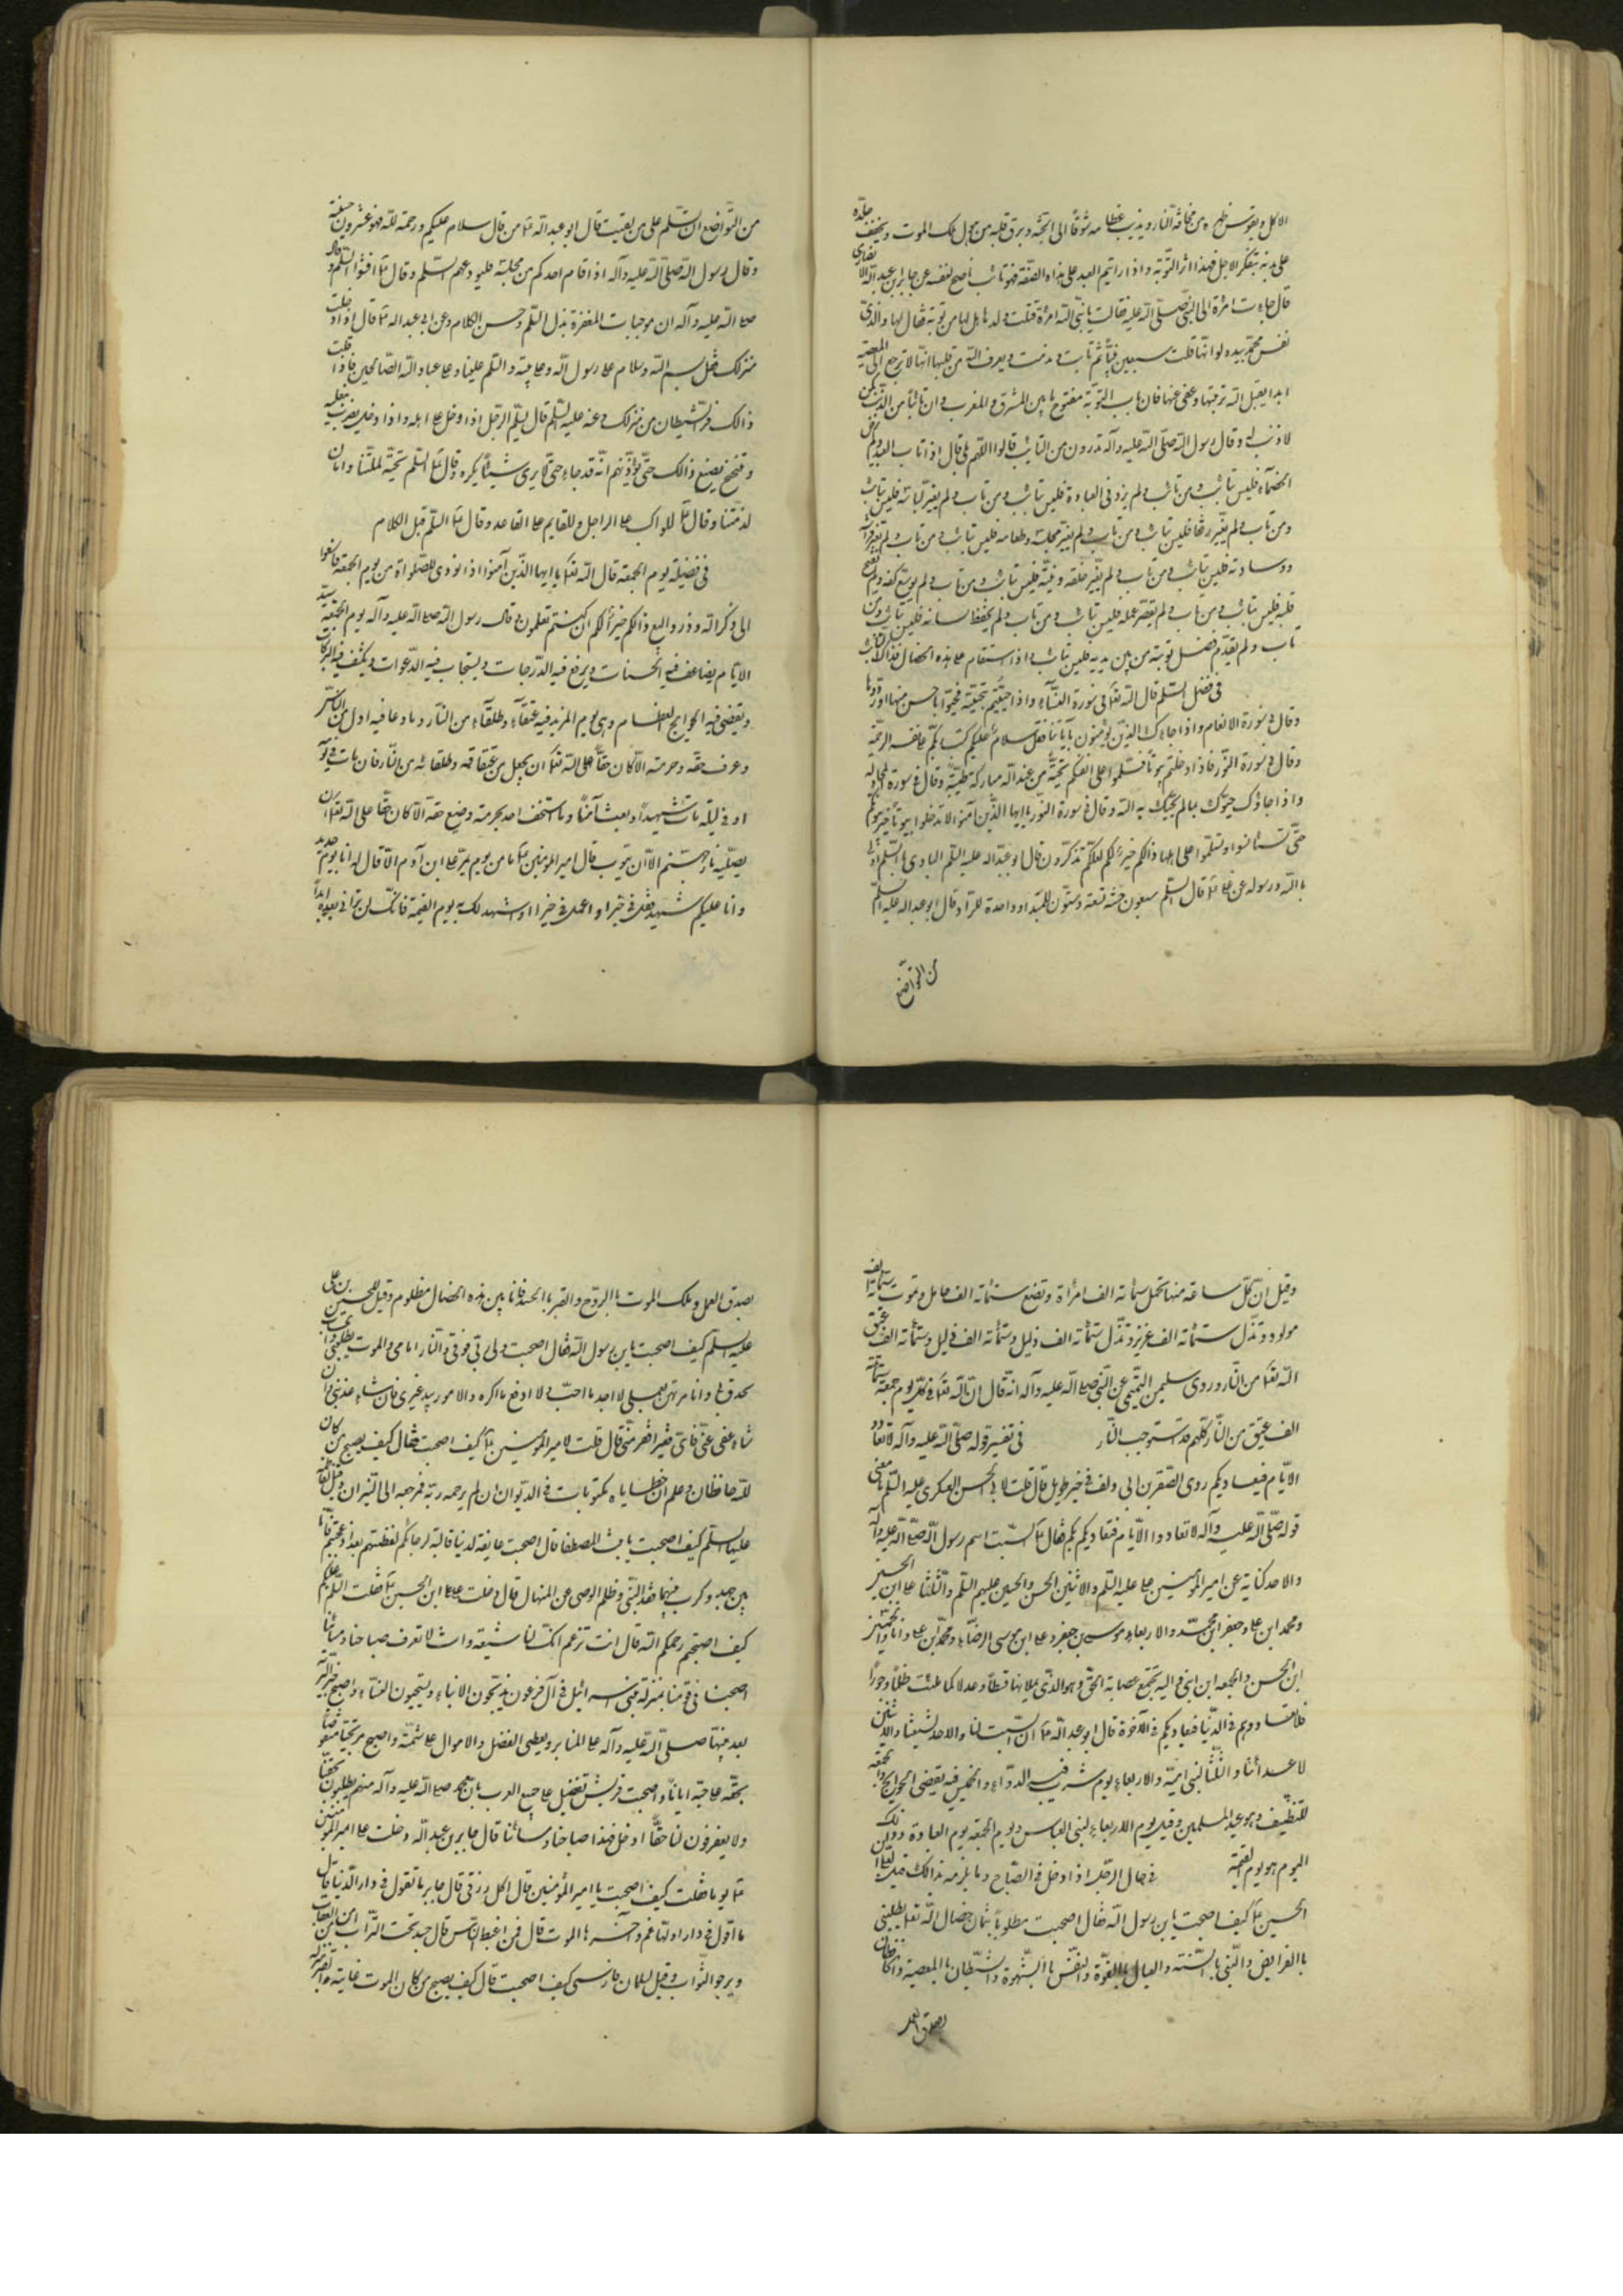 الاكل ويقوس ظهره من مخافة النار ويذيب عظامه شوقًا الى الجنة ويرق قلبه من هول ملك الموت ويجفف جلده
على بدنه بتفكر الاجل فهذا اثر التوبة واذا رايتم العبد على هذه الصفة فهو تائب ناصح لنفسه عن جابر ابن عبد الله الانصارى
قال جاءت امرأة الى النبى صلى الله عليه فقالت يا نبى الله امرأة قتلت ولدها هل لها من توبة فقال لها والذى
نفس محمد بيده لو انها قتلت سبعين نبيًّا ثم تابت وندمت ويعرف الله من قلبها انها لا ترجع الى المعصية
ابدا يقبل الله توبتها وعفى عنها فان باب التوبة مفتوح ما بين المشرق والمغرب وان التائب من الذنب كمن
لا ذنب له وقال رسول الله صلى الله عليه وآله تدرون من التايب قالوا اللهم لا قال اذا تاب العبد ولم يرض
الخصماء فليس بتائب ومن تاب ولم يزد فى العبادة فليس بتائب ومن تاب ولم يغير لباسه فليس بتائب
ومن تاب ولم يغير رفقاءه فليس بتائب ومن تاب ولم يغير مجلسه وطعامه فليس بتائب ومن تاب ولم يغير فراشه
ووسادته فليس بتائب ومن تاب ولم يغير خلقه ونيته فليس بتائب ومن تاب ولم يوسع كفه ولم يفتح
قلبه فليس بتائب ومن تاب ولم يقصر امله فليس بتائب ومن تاب ولم يحفظ لسانه فليس بتائب ومن
تاب ولم يقدم فضل قوته من بين يديه فليس بتائب واذا استقام على هذه الخصال فذاك التائب
فى فضل السلم قال الله تعالى فى سورة النسآء واذا حييتم بتحية فحيوا باحسن منها او ردوها
وقال فى سورة الانعام واذا جاءك الذين يؤمنون بآياتنا فقل سلام عليكم كتب ربكم على نفسه الرحمة
وقال فى سورة النور فاذا دخلتم بيوتًا فسلموا على انفسكم تحية من عند الله مباركة طيبة وقال فى سورة المجادله
واذا جاؤك حيوك بما لم يحيك به الله وقال فى سورة النور يا ايها الذين آمنوا لا تدخلوا بيوتًا غير بيوتكم
حتى تستانسوا وتسلموا على اهلها ذالكم خير لكم لعلكم تذكرون قال ابو عبد الله عليه السلم البادى بالسلم اولى
بالله ورسوله عن على قال السلم سبعون حسنة تسعة وستون للمبتدا وواحدة للراد وقال ابو عبد الله عليه السلم
من التواضع
من التواضع ان تسلم على من لقيت قال ابو عبد الله من قال سلام عليكم ورحمة لله فهو عشرون حسنة
وقال رسول الله صلى الله عليه وآله اذا قام احدكم من مجلسه فليودعهم بالسلم وقال افشوا السلم وقال
صلى الله عليه وآله ان موجبات المغفرة بذل السلم وحسن الكلام وعن ابى عبد الله قال اذا دخلت
منزلك فقل بسم الله وسلام على رسول الله وعلى اهل بيته والسلم علينا وعلى عباد الله الصالحين فاذا قلت
ذالك فر الشيطان من منزلك وعنه عليه السلم قال يسلم الرجل اذا دخل على اهله واذا دخل يضرب بنعليه
ويتنحنح يصنع ذالك حتى يؤذنهم انه قد جاء حتى لا يرى شيئًا يكره وقال السلم تحية لملتنا وامان
لذمتنا وقال للراكب على الراجل وللقايم على القاعد وقال السلم قبل الكلام
فى فضيلة يوم الجمعة قال الله تعالى يا ايها الذين آمنوا اذا نودى للصلواة من يوم الجمعة فاسعوا
الى ذكر الله وذروا البيع ذالكم خير لكم ان كنتم تعلمون وقال رسول الله صلى الله عليه وآله يوم الجمعة سيد
الايام يضاعف فيه الحسنات ويرفع فيه الدرجات ويستجاب فيه الدعوات ويكشف فيه الكربات
ويقضى فيه الحوايج العظام وهى يوم المزيد فيه عتقآء وطلقآء من النار وما دعا فيه احد من الناس
وعرف حقه وحرمته الا كان حقًا على الله تعالى ان يجعل من عتقائه وطلقائه من النار فان مات فى يومه
او فى ليلته مات شهيدًا وبعث آمنًا وما استخف احد بحرمته وضيع حقه الا كان حقًا على الله تعالى ان
يصليه نار جهنم الا ان يتوب قال امير المؤمنين ما من يوم يمر على ابن آدم الا قال له انا يوم جديد
وانا عليكم شهيد فقل فى خيرا واعمل فى خيرا اشهد لك به يوم القيمة فانك لن ترانى بعده ابدًا
وقيل ان كل ساعة منها تحمل ستمائة الف امراة وتضع ستمائة الف حامل وتموت ستمائة الف
مولود وتذل ستمائة الف عزيز وتذل ستمائة الف ذليل وستمائة الف قليل وستمائة الف عتيق
الله تعالى من النار وروى سليمن التيمى عن النبى صلى الله عليه وآله انه قال ان لله تعالى فى كل يوم جمعة ستمائة
الف عتيق من النار كلهم قد استوجب النار فى تفسير قوله صلى الله عليه وآله لا تعادوا
الايام فيعاديكم روى الصقر بن ابى دلف فى خبر طويل قال قلت لابى الحسن العسكرى عليه السلم ما معنى
قوله صلى الله عليه وآله لا تعادوا الايام فتعاديكم فقال السبت اسم رسول الله صلى الله عليه وآله
والاحد كناية عن امير المؤمنين على عليه السلم والاثنين الحسن والحسين عليهم السلم والثلثا على ابن الحسين
ومحمد ابن على وجعفر ابن محمد والاربعاء موسى بن جعفر وعلى ابن موسى الرضاء ومحمد ابن على وانا والخميس
ابن الحسن والجمعة ابن ابنى واليه تجتمع عصابة الحق وهو الذى يملاها قسطًا وعدلا كما ملئت ظلمًا وجورًا
فلا تعادوهم فى الدنيا فيعاديكم فى الآخرة قال ابو عبد الله ان السبت لنا والاحد لشيعتنا والاثنين
لاعدائنا والثلثا لبنى امية والاربعاء يوم شرب فيه الدواء والخميس فيه يقضى الحوايج والجمعة
للتنظيف وهو عيد المسلمين وقيل يوم الاربعاء لبنى العباس ويوم الجمعة يوم العبادة وذلك
اليوم هو يوم القيمة فى حال الرجل اذا دخل فى الصباح وما يلزمه بذالك قيل لعلى ابن
الحسين كيف اصبحت يا ابن رسول الله فقال اصبحت مطلوبًا بثمان خصال الله تعالى يطلبنى
بالفرايض والنبى بالسنة والعيال بالقوة والنفس بالشهوة والشيطان بالمعصية والحافظان
بصدق العمل
بصدق العمل وملك الموت بالروح والقبر بالجسد فانا بين هذه الخصال مظلوم وقيل للحسين بن على
عليه السلم كيف اصبحت يا ابن رسول الله فقال اصبحت ولى ربى فوقى والنار امامى والموت يطلبنى والحساب
محدق بى وانا مرتهن بعملى لا اجد ما احب ولا ادفع ما اكره والامور بيد غيرى فان شاء عذبنى وان
شاء عفى عنى فاى فقير افقر منى قال قلت لامير المؤمنين كيف اصبحت فقال كيف يصبح من كان
لله حافظان وعلم ان خطاياه مكتوبات فى الديوان ان لم يرحمه ربه فمرجعه الى النيران وقيل لفاطمة
عليها السلم كيف اصبحت يا بنت المصطفى قال اصبحت عايفة لدنياكم قالية لرجالكم لفظتهم بعد اذ عجمتهم فانا
بين جهد وكرب بينهما فقد النبى وظلم الوصى عن المنهال قال دخلت على على ابن الحسين فقلت السلم عليكم
كيف اصبحتم رحمكم الله قال انت تزعم انك لنا شيعة وانت لا تعرف صباحنا ومسائنا
اصبحنا فى قومنا بمنزلة بنى اسرائيل فى آل فرعون يذبحون الابناء ويستحيون النساء واصبح خير البرية
بعد نبيها صلى الله عليه وآله على المنابر ويعطى الفضل والاموال على شتمه واصبح من يحبنا منقوصًا
بحقه على حبه ايانا واصبحت قريش تفضل على جميع العرب بان محمد صلى الله عليه وآله منهم يطلبون بحقنا
ولا يعرفون لنا حقًا ادخل فهذا صباحنا ومسائنا قال جابر بن عبد الله دخلت على امير المؤمنين
يوما فقلت كيف اصبحت يا امير المؤمنين قال آكل رزقى قال جابر ما تقول فى دار الدنيا قال
ما اقول فى دار اولها غم وآخرها الموت قال فمن اغبط الناس قال جسد تحت التراب امن من العقاب
ويرجو الثواب وقيل لسلمان فارسى كيف اصبحت قال كيف يصبح من كان الموت غايته والقبر منزله